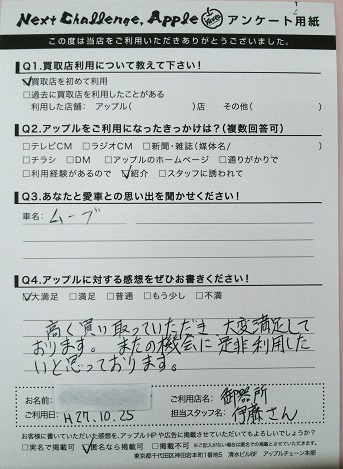 Next Challenge, Apple アンケート用紙
この度は当店をご利用いただきありがとうございました。
Q1.買取店利用について教えて下さい!
☑買取店を初めて利用
□過去に買取店を利用したことがある
利用した店舗: アップル( )店 その他( )
Q2.アップルをご利用になったきっかけは?(複数回答可)
□テレビCM □ラジオCM □新聞・雑誌(媒体名/ )
□チラシ □DM □アップルのホームページ □通りがかりで
□利用経験があるので ☑紹介 □スタッフに誘われて
Q3.あなたと愛車との思い出を聞かせください!
車名: ムーブ
Q4.アップルに対する感想をぜひお書きください!
☑大満足 □満足 □普通 □もう少し □不満
高く買い取っていただき、大変満足して
おります。またの機会に是非利用した
いと思っております。
お名前: ご利用店名: 御器所
ご利用日: H27.10.25 担当スタッフ名: 伊藤さん
お客様に書いていただいた感想を、アップルHPや広告に掲載させていただいてもよろしいでしょうか?
□実名で掲載可 ☑匿名なら掲載可 □掲載不可
東京都千代田区神田岩本町1番地5 清水ビル6F アップルチェーン本部